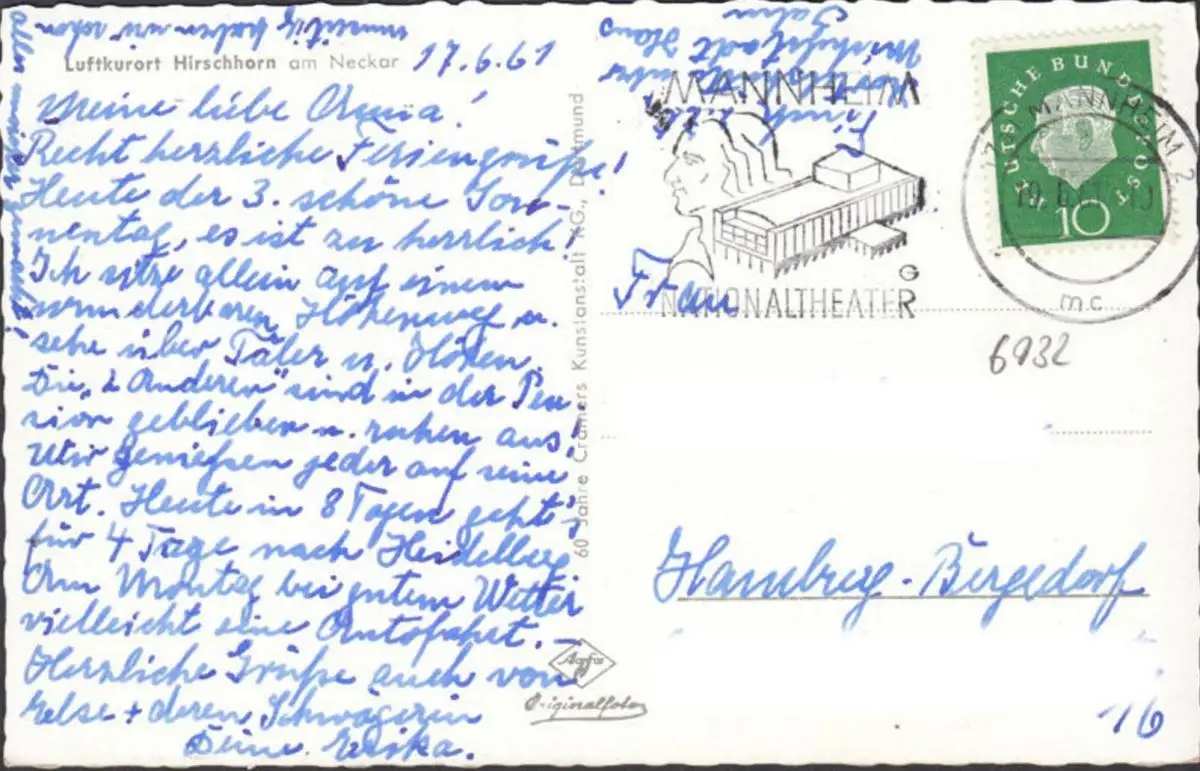 Luftkurort Hirschhorn am Neckar
17.6.61
Meine liebe Anna!
Recht herzliche Feriengrüße!
Heute der 3. schöne Son-
nentag, es ist zu herrlich!
Ich sitze allein auf einem
wunderbaren Höhenweg u.
sehe über Täler u. Höhen.
Die "2 Anderen" sind in der Pen-
sion geblieben u. ruhen aus!
Wir genießen jeder auf seine
Art. Heute in 8 Tagen geht's
für 4 Tage nach Heidelberg
Am Montag bei gutem Wetter
vielleicht eine Autofahrt. –
Herzliche Grüße auch von
Else + deren Schwägerin
Deine Erika.
haben wir schon
60 Jahre Cramers Kunstanstalt KG., Dortmund
Agfa
Originalfoto
Michelstadt Haus
MANNHEIM
NATIONALTHEATER
G
R
DEUTSCHE BUNDESPOST
10
MANNHEIM 2
mc
Frau
6932
Hamburg-Bergedorf
16